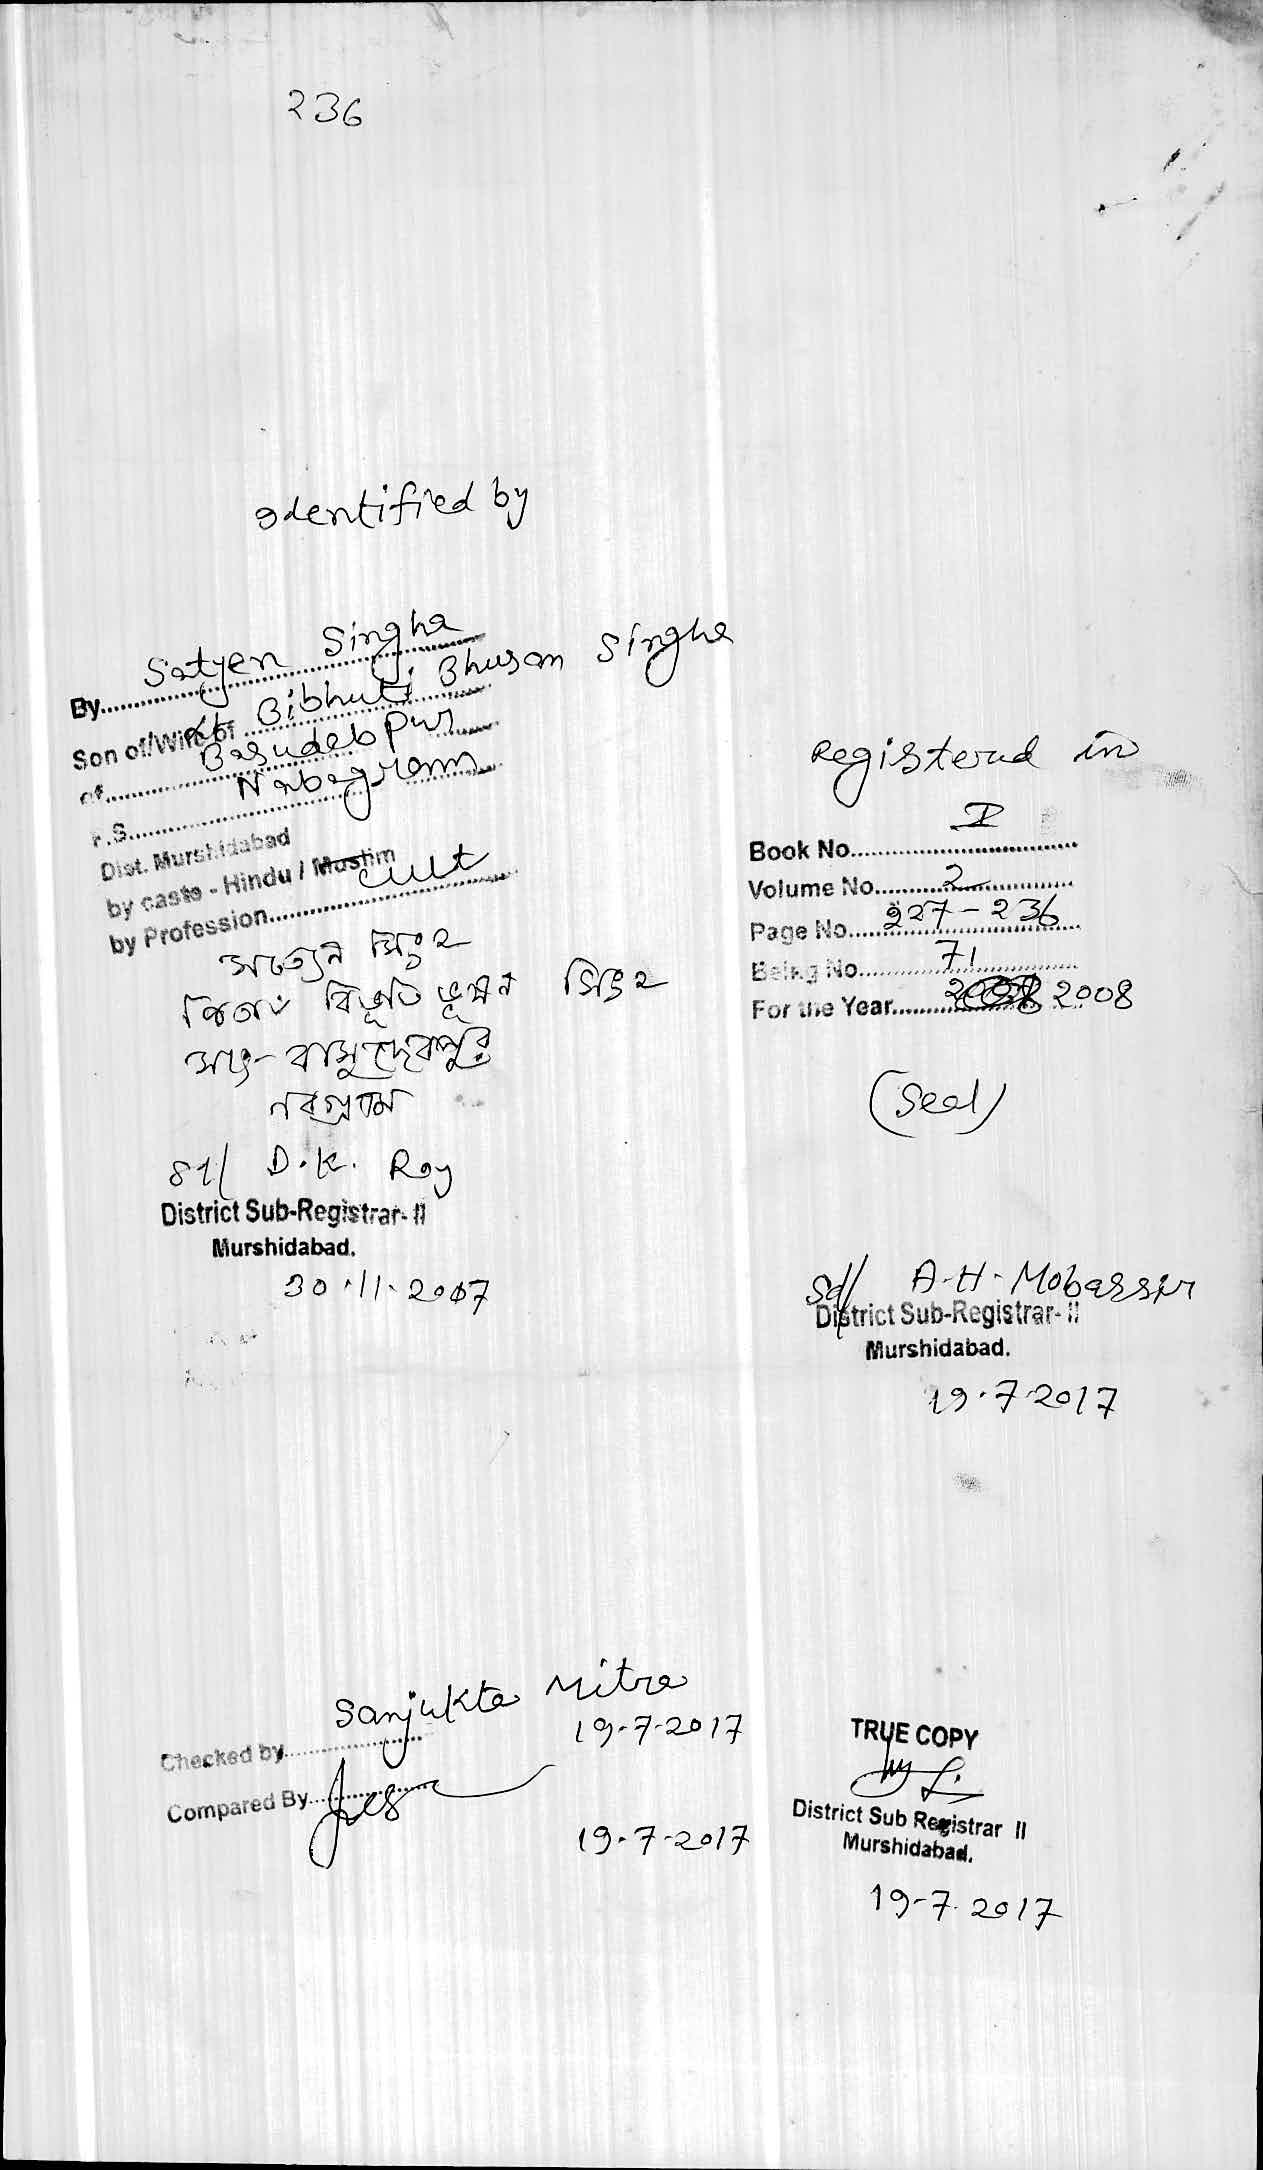 236
Identified by
By..........Satyen Singha
Son of/Wife of Lt Bibhuti Bhusan Singha
of..........Basudebpur
P.S..........Nabagram
Dist. Murshidabad
by caste - Hindu / Muslim
by Profession..........Cult
সত্যেন সিংহ
পিতাৎ বিভূতি ভূষন সিংহ
সাং- বাসুদেবপুর
নবগ্রাম
Sd/ D.K. Roy
District Sub-Registrar- II
Murshidabad.
30.11.2007
Registered in
Book No..........I
Volume No..........2
Page No..........227-236
Being No..........71
For the Year..........2008
(Seal)
Sd/ A-H-Mobassir
District Sub-Registrar- II
Murshidabad.
19.7.2017
Sanjukta Mitra
Checked by..........
19-7-2017
Compared By..........
19-7-2017
TRUE COPY
District Sub Registrar II
Murshidabad.
19-7.2017